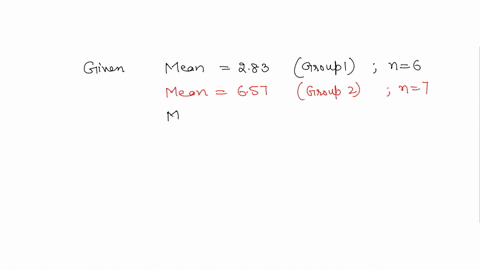 Given Mean = 2.83 (Group1) ; n=6
Mean = 6.57 (Group 2) ; n=7
M